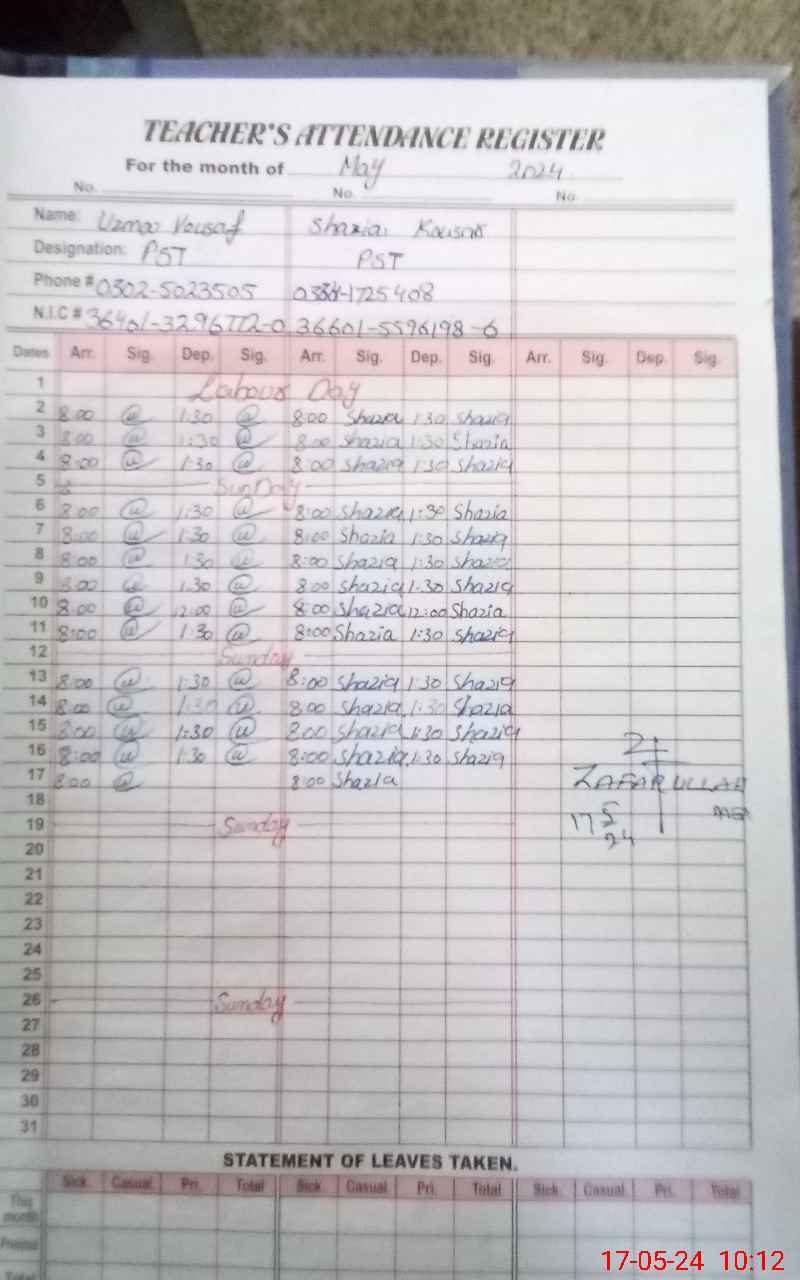 TEACHER'S ATTENDANCE REGISTER
For the month of May 2024
No. No. No.
Name: Uzma Yousaf Shazia Kousar
Designation: PST PST
Phone # 0302-5023505 0334-1725408
N.I.C # 36401-3296772-0 36601-5596198-6
Dates Arr. Sig. Dep. Sig. Arr. Sig. Dep. Sig. Arr. Sig. Dep. Sig.
1 Labour Day
2 8:00 @ 1:30 @ 8:00 Shazia 1:30 Shazia
3 8:00 @ 1:30 @ 8:00 Shazia 1:30 Shazia
4 8:00 @ 1:30 @ 8:00 Shazia 1:30 Shazia
5 SunDay
6 8:00 @ 1:30 @ 8:00 Shazia 1:30 Shazia
7 8:00 @ 1:30 @ 8:00 Shazia 1:30 Shazia
8 8:00 @ 1:30 @ 8:00 Shazia 1:30 Shazia
9 8:00 @ 1:30 @ 8:00 Shazia 1:30 Shazia
10 8:00 @ 12:00 @ 8:00 Shazia 12:00 Shazia
11 8:00 @ 1:30 @ 8:00 Shazia 1:30 Shazia
12 Sunday
13 8:00 @ 1:30 @ 8:00 Shazia 1:30 Shazia
14 8:00 @ 1:30 @ 8:00 Shazia 1:30 Shazia
15 8:00 @ 1:30 @ 8:00 Shazia 1:30 Shazia
16 8:00 @ 1:30 @ 8:00 Shazia 1:30 Shazia
17 8:00 @ 8:00 Shazia ZAFAR ULLAH
18
19 Sunday 17 5 24
20
21
22
23
24
25
26 Sunday
27
28
29
30
31
STATEMENT OF LEAVES TAKEN.
Sick. Casual. Pri. Total Sick. Casual. Pri. Total Sick. Casual. Pri. Total
This month
Previous
Total
17-05-24 10:12